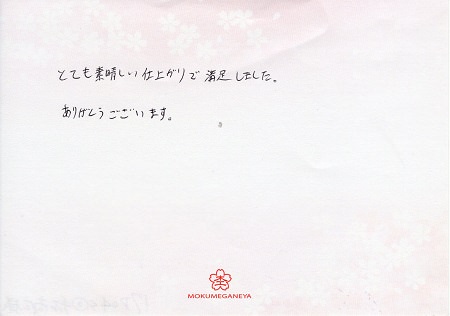 とても素晴しい仕上がりで満足しました。
ありがとうございます。
MOKUMEGANEYA